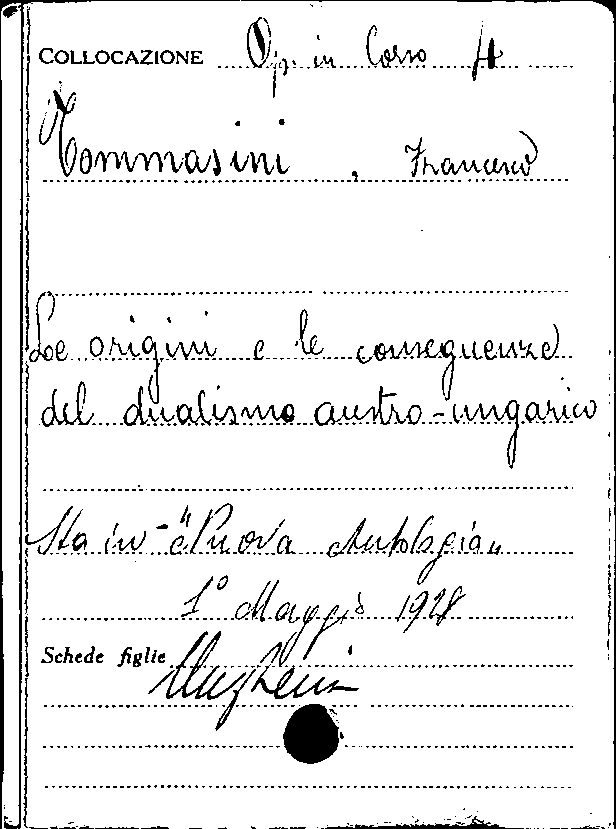 COLLOCAZIONE Op. in Corso 4
Tommasini, Francesco
Le origini e le conseguenze
del dualismo austro-ungarico
Sta in "Nuova Antologia"
1° Maggio 1928
Schede figlie Ungheria